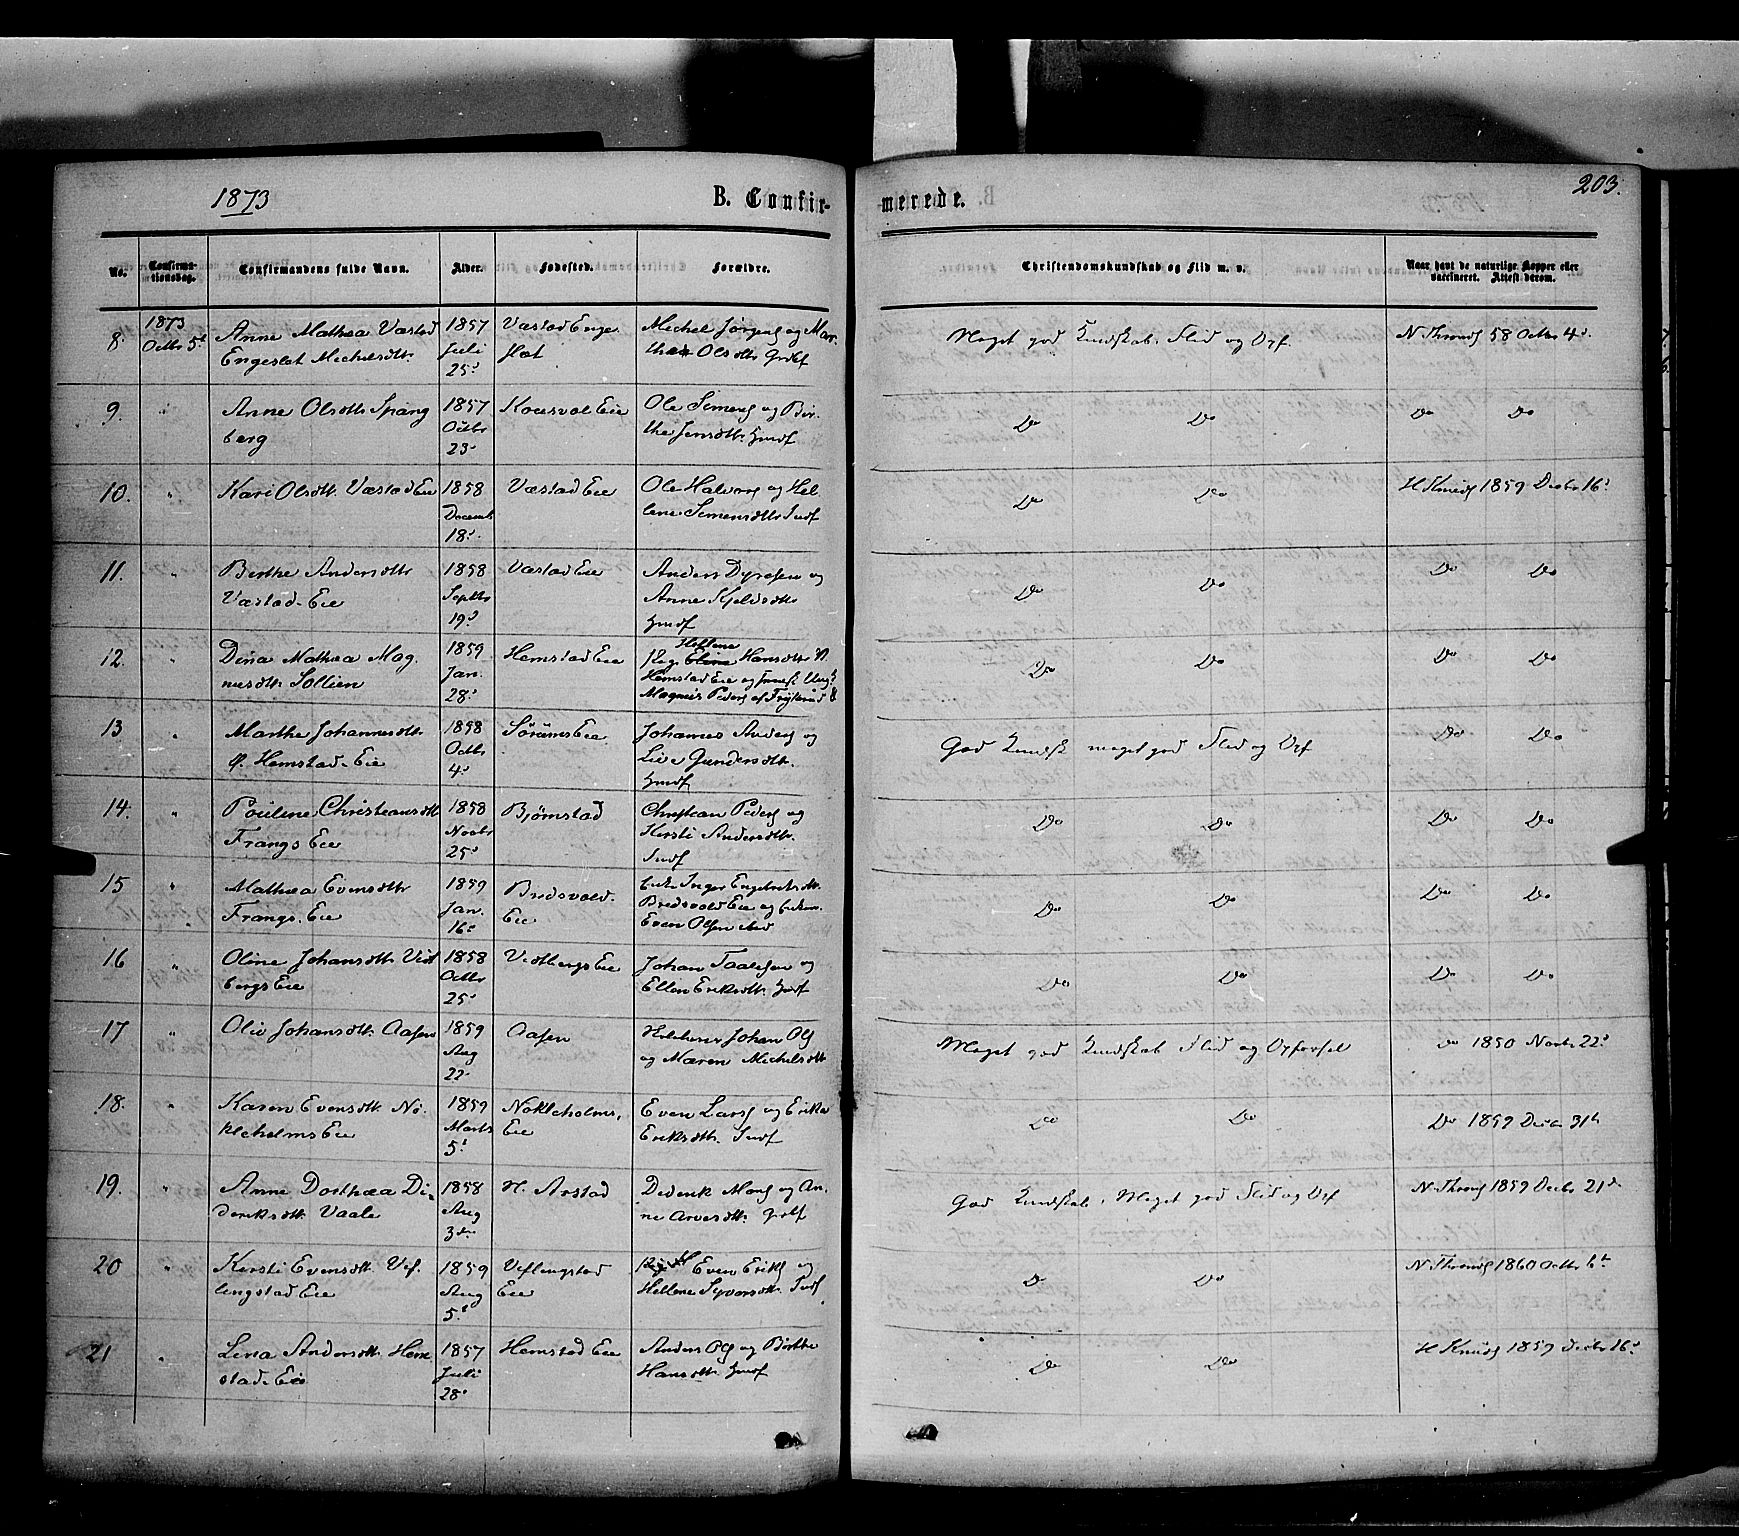 1873
B. Confir-
merede.
203.
No.
Confirma-
tionsdag.
Confirmandens fulde Navn.
Alder.
Fødested.
Forældre.
Christendomskundskab og Flid m. v.
Naar havt de naturlige Kopper eller
vaccineret. Attest derom.
8.
1873
Octbr 5t
Anne Mathea Væstad
Engeslet Michelsdttr
1857
Juli
25.
Væstad Enge
Michel Jørgens og Mar-
the Olsdttr
Meget god Kundskab. Flid og Opf.
N Thronds 58 Octbr 4d.
9.
Anne Olsdttr Spang
berg
1857
Octbr
23.
Eie
Ole Simens og Bir-
the Jensdttr.
Do
Do
Do
Do
10.
"
Kari Olsdttr. Væstad Eie
1858
Decemb
18d.
Væstad Eie
Ole Halvors og Hel
lene Simensdttr
Do
Do
1859 Decbr 16d
11.
"
Berthe Andersdttr
Væstad-Eie
1858
Septbr
19d
Væstad Eie
Anders og
Anne Kjeldsdttr
Do
Do
Do
Do
12.
"
Dina Mathea Mag
nusdttr. Sollien
1859
Jan.
28d
Hemstad Eie
Hellene
Pige Hansdttr
Hemstad Eie og Ung
Magnus Peders af
Do
Do
Do
Do
13
"
Marthe Johannesdttr
Ø. Hemstad-Eie
1858
Octbr
4d
Sørums Eie
Johannes Anders og
Live Gundersdttr.
God Kundsk meget god Flid og Opf
Do
Do
14.
"
Poulene Christiansdttr
Frangs Eie
1858
Novbr
25d
Bjørnstad
Christian Peders og
Kersti Andersdttr.
Do
Do
Do
Do
15
"
Mathea Evensdttr
Frangs. Eie
1859
Jan.
16d
Bredsvold.
Eie
Enke Inger Engebretsdttr.
Bredsvold Eie og
Even Olsen
Do
Do
Do
Do
16
"
Oline Johansdttr Vidt
bergs Eie
1858
Octbr
25d
Vidtbergs Eie
Johan og
Ellen Eriksdttr.
Do
Do
Do
Do
17
"
Oliv Johansdttr. Aasen
1859
Aug
22d
Aasen
Johan Ols
og Maren Michelsdttr
Meget god Kundskab Flid og Opførsel
Do 1850 Novbr 22d
18.
"
Karen Evensdttr Nø.
kleholms Eie
1859
Marts
5d
Nøkleholms,
Eie
Even Lars og Erika
Eriksdttr.
Do
Do
Do 1859 31te
19.
"
Anne Dorthæa Di-
deriksdttr. Vaale
1858
Aug
3die
N. Arstad
Dederik Mons og An-
ne Arnesdttr.
God Kundskab. Meget god Flid og Opf
N. Thrond 1859 Decbr 21de
20
"
Kersti Evensdttr. Vef.
lengstad Eie
1859
Aug
5d
Veflengstad
Eie
Even Eriks og
Hellene Syversdttr.
Do
Do
N. Thronds 1860 Octbr 6te
21
"
Lena Andersdttr. Hem
stad. Eie
1857
Juli
28d
Hemstad Eie
Anders Ols og Birthe
Hansdttr
Do
Do
H Knuds 1859 Decbr 16d